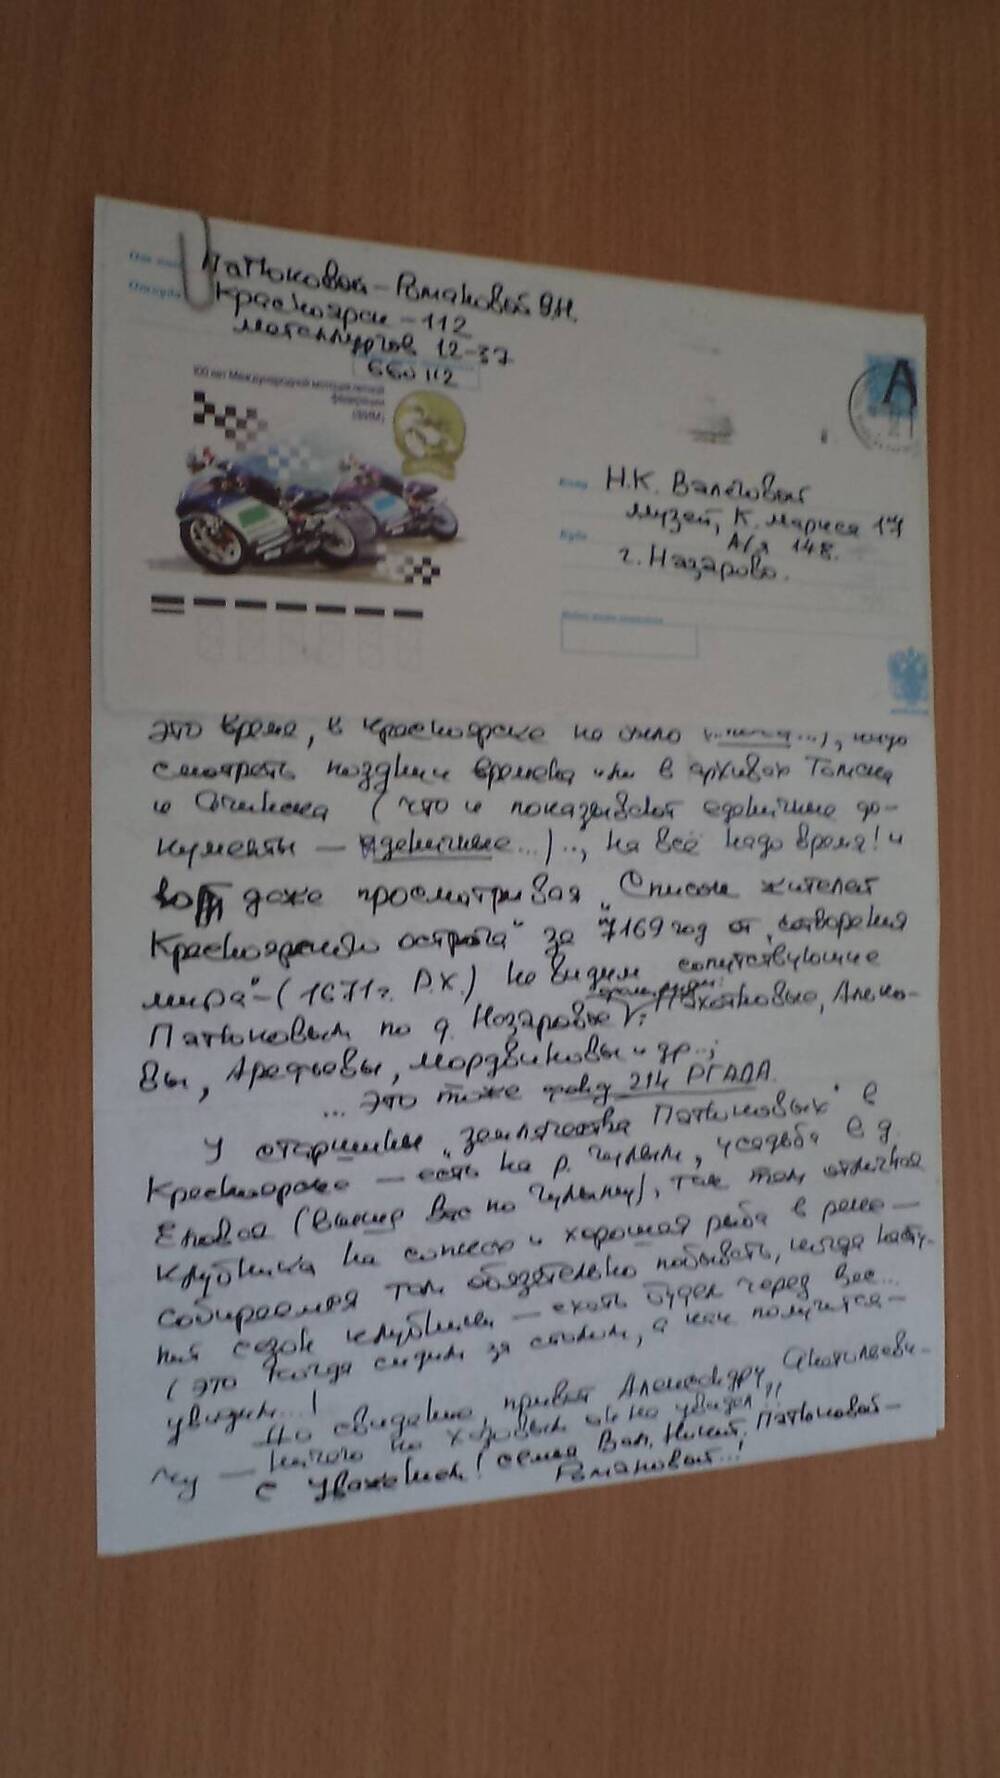 От кого Патюковой-Романовой В.Н.
Откуда Красноярск-112
Металлургов 12-37
660112
100 лет Международной мотоциклетной
федерации
(ФИМ)
А
Кому Н.К. Валеговый
Музей, К. Маркса 17
А/я 148.
Куда г. Назарово.
это время, в Красноярске не было, надо
смотреть поздни времена или в архивах Томска
и Ачинска (что и показывают единичные до-
кументы — единичные...).., на всё надо время! и
вот даже просматривая „Список жителей
Красноярского острога" за "7169 год от „сотворения
мира"-(1671г. Р.Х.) не видим сопутствующие
Патюковым по д. Назарове фамилии: Пахотковые,
вы, Арефьевы, Мордвиковы и др..;
... это тоже фонд 214 РГАДА.
У старшины „землячества Патюковых" в
Красноярске — есть на р. Чулым, усадьба в д.
Еловой (выше Вас по Чулыму), там отличная
клубника на и хорошая рыба в реке —
собираемся там обязательно побывать, когда насту-
пит сезон клубники — ехать будем через Вас...
(это когда сидим за столом, а как получится —
увидим...!
До свидания, привет Александру Анатольеви-
чу — ничего не увидел,,
с уважением! семья Вал. Никит. Патюковой-
Романовой...!